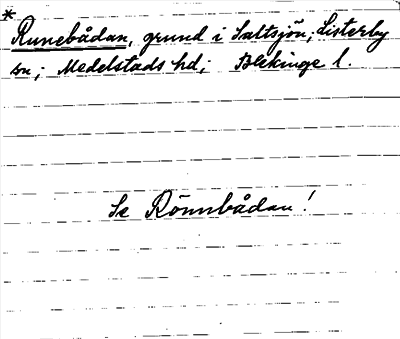 *
Runebådan, grund i Saltsjön; Listerby
sn; Medelstads hd; Blekinge l.
Se Rönnbådan!